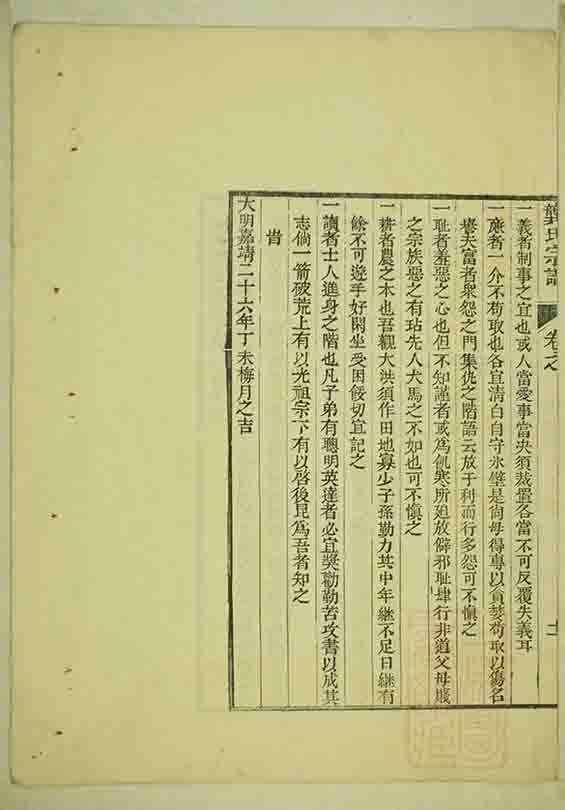 龔氏宗譜
卷之
一義者制事之宜也或人當愛事當央須裁置各當不可反覆失義耳
一廉者一介不苟取也各宜清白自守氷壁是尚毋得專以貪婪苟取以傷名
譽夫富者衆怨之門集仇之階語云放于利而行多怨可不愼之
一恥者羞惡之心也但不知謹者或爲飢寒所廹放僻邪恥肆行非道父母
之宗族惡之有玷先人犬馬之不如也可不愼之
一耕者農之本也吾觀大洪須作田地寡少子孫勤力其中年繼不足日繼有
餘不可遊手好閑坐受困餒切宜記之
一讀者士人進身之階也凡子弟有聰明英達者必宜奬勸勤苦攻書以成其
志倘一箭破荒上有以光祖宗下有以啓後昆爲吾者知之
旹
大明嘉靖二十六年丁未梅月之吉